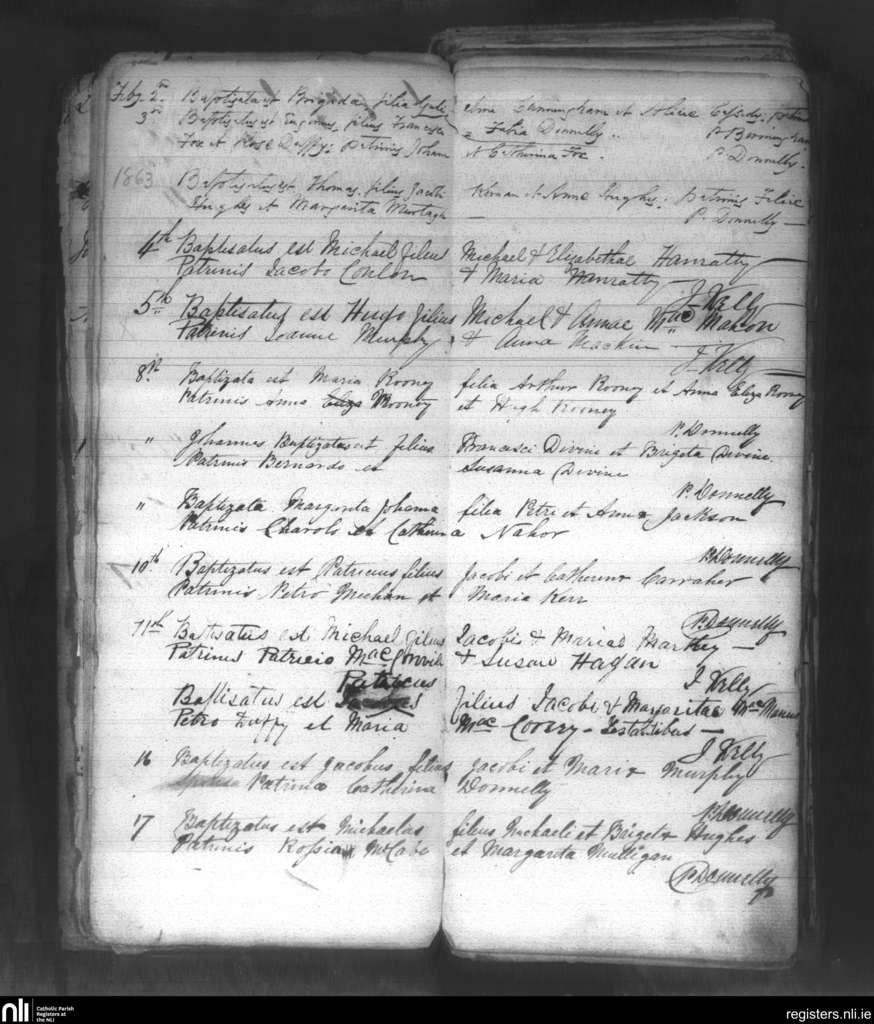 Feby 2nd Baptizata est Brigida, filia Anna Cunningham et Cassidy;
3rd Baptizatus est Eugenius, filius Francisci Felix Donnelly .. P. Birmingham
Fox et Rose Duffy; Patrinis Johann et Catherina Fox. P. Donnelly.
1863 Baptizatus est Thomas, filius Jacob Kernan et Anne Hughes; patrinis Felix
Hughes et Margarita Murtagh — P. Donnelly —
4th Baptisatus est Michael filius Michael & Elizabethae Hanratty
Patrinis Jacobo Conlon & Maria Hanratty
J Kelly
5th Baptisatus est Hugo filius Michael & Annae Mac Mahon
Patrinis Joanne Murphy & Anna Mackin
J. Kelly
8th Baptizata est Maria Rooney filia Arthur Rooney et Anna Eliza Rooney
Patrinis Anna Eliza Rooney et Hugh Rooney
P. Donnelly
" Johannes Baptizatus est filius Francisci Divine et Brigeta Divine.
Patrinis Bernardo et Susanna Divine
P. Donnelly
" Baptizata Margarita Johanna filia Petri et Anna Jackson
Patrinis Charolo et Catherina Nahor
P. Donnelly
10th Baptizatus est Patricius filius Jacobi et Catherina Carraher
Patrinis Petro Meehan et Maria Kerr
P. Donnelly
11th Batisatus est Michael filius Jacobi & Mariae Markey —
Patrinis Patricio Mac Convill & Susan Hagan
J Kelly
Patricius
Baptisatus est Jacobus filius Jacobi & Margaritae Mac Manus
Petro Duffy et Maria Mac Coony — Testatibus —
J Kelly
16 Baptizatus est Jacobus filius Jacobi et Maria Murphy
Patrina Catherina Donnelly
P. Donnelly
17 Baptizatus est Michaelas filius Michaeli et Brigeta Hughes
Patrinis Rossia McCabe et Margarita Mulligan
P. Donnelly
nli
Catholic Parish
Registers at
the NLI
registers.nli.ie